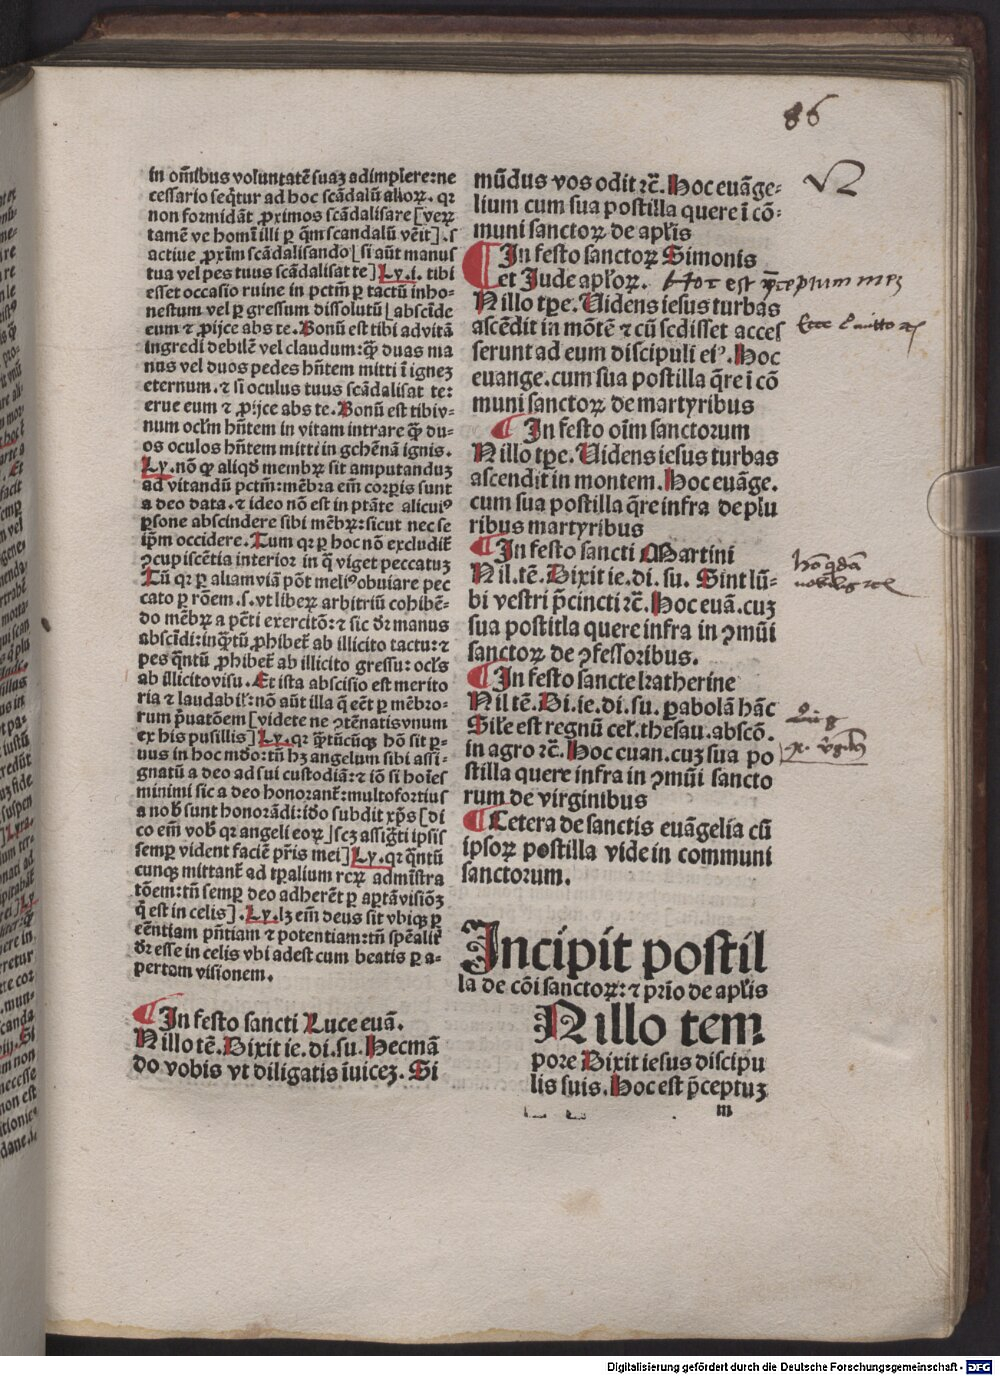 86
in om̄ibus voluntatē suaꝫ adimplere: ne
cessario seq̄tur ad hoc scādalū alioꝝ. qꝛ
non formidāt ꝓximos scādalisare [veꝝ
tamē ve homī illi ꝑ q̄m scandalū vēit]. s
actiue ꝓxīm scādalisando [si aūt manus
tua vel pes tuus scādalisat te] Ly. i. tibi
esset occasio ruine in pctm̄ ꝑ tactū inho-
nestum vel ꝑ gressum dissolutū [abscide
eum ⁊ ꝓijce abs te. Bonū est tibi ad vitā
ingredi debilē vel claudum: q̄ꝫ duas ma
nus vel duos pedes hn̄tem mitti ī igneꝫ
eternum. ⁊ si oculus tuus scādalisat te:
erue eum ⁊ ꝓijce abs te. Bonū est tibi v-
num ocl̄m hn̄tem in vitam intrare q̄ꝫ du-
os oculos hn̄tem mitti in gehēnā ignis.
Ly. nō ꝙ aliqd̄ membꝝ sit amputanduꝫ
ad vitandū pctm̄: mēbra em̄ corꝑis sunt
a deo data. ⁊ ideo nō est in ptāte alicuiꝰ
ꝑsone abscindere sibi mēbꝝ: sicut nec se
ip̄m occidere. Tum qꝛ ꝑ hoc nō excludit̄
ꝯcupiscētia interior in q̄ viget peccatuꝫ
Tū qꝛ ꝑ aliam viā pōt meliꝰ obuiare pec
cato ꝑ rōem. s. vt libeꝝ arbitriū cohibē-
do mēbꝝ a pc̄ti exercitō: ⁊ sic dꝛ manus
abscīdi: inq̄tū ꝓhibet̄ ab illicito tactu: ⁊
pes q̄ntū ꝓhibet̄ ab illicito gressu: ocl̄s
ab illicito visu. Et ista abscisio est merito
ria ⁊ laudabil̄: nō aūt illa q̄ eēt ꝑ mēbro-
rum p̄uatōem [videte ne ꝯtēnatis vnum
ex his pusillis] Ly. qꝛ q̄ꝫtūcūqꝫ hō sit ꝑ-
uus in hoc mūdo: tn̄ hꝫ angelum sibi assi-
gnatū a deo ad sui custodiā: ⁊ iō si hoīes
minimi sic a deo honorant̄: multofortius
a nob̄ sunt honorādi: ideo subdit xp̄s [di
co em̄ vob̄ qꝛ angeli eoꝝ] scꝫ assiḡti ipsis
semꝑ vident faciē pr̄is mei] Ly. qꝛ q̄ntū
cunqꝫ mittant̄ ad tꝑalium reꝝ admīstra
tōem: tn̄ semꝑ deo adherēt ꝑ aꝑtā visiōꝫ
q̄ est in celis]. Ly. lꝫ em̄ deus sit vbiqꝫ ꝑ
eēntiam pn̄tiam ⁊ potentiam: tn̄ spēalit̄
dꝛ esse in celis vbi adest cum beatis ꝑ a-
pertam visionem.
¶ In festo sancti Luce euā.
Nillo tē. Dixit ie. di. su. Hec mā
do vobis vt diligatis īuiceꝫ. Si
mūdus vos odit ⁊c̄. Hoc euāge-
lium cum sua postilla quere ī cō-
muni sanctoꝝ de apl̄is
¶ In festo sanctoꝝ Simonis
et Jude apl̄oꝝ. Hoc est p̄ceptum meꝫ
Nillo tꝑe. Videns iesus turbas
ascēdit in mōtē ⁊ cū sedisset acces
serunt ad eum discipuli eiꝰ. Hoc
euange. cum sua postilla q̄re ī cō
muni sanctoꝝ de martyribus
¶ In festo oīm sanctorum
Nillo tꝑe. Videns iesus turbas
ascendit in montem. Hoc euāge.
cum sua postilla q̄re infra de plu
ribus martyribus
¶ In festo sancti Martini
Nil. tē. Dixit ie. di. su. Sint lū-
bi vestri p̄cincti ⁊c̄. Hoc euā. cuꝫ
sua postilla quere infra in ꝯmūi
sanctoꝝ de ꝯfessoribus.
¶ In festo sancte katherine
Nil tē. Di. ie. di. su. ꝑabolā hāc
Sil̄e est regnū cel̄. thesau. abscō.
in agro ⁊c̄. Hoc euan. cuꝫ sua po
stilla quere infra in ꝯmūi sancto
rum de virginibus
¶ Cetera de sanctis euāgelia cū
ipsoꝝ postilla vide in communi
sanctorum.
Incipit postil
la de cōi sanctoꝝ: ⁊ prīo de apl̄is
Nillo tem
pore Dixit iesus discipu
lis suis. Hoc est p̄ceptuꝫ
m
Digitalisierung gefördert durch die Deutsche Forschungsgemeinschaft - DFG